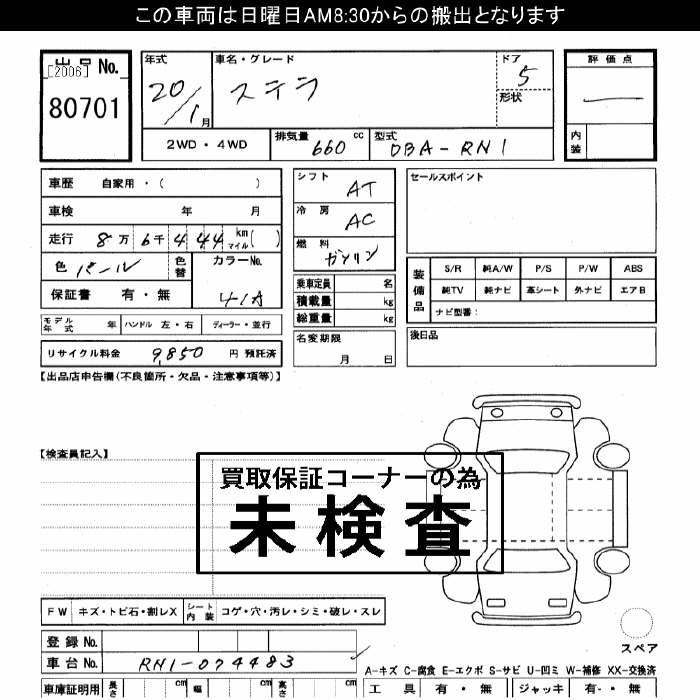 この車両は日曜日AM8:30からの搬出となります
出品 No.
[2006]
80701
年式
20/1月
車名・グレード
ステラ
ドア
5
形状
評価点
内装
2WD・4WD
排気量 660 cc
型式 DBA-RN1
車歴 自家用・( )
車検 年 月
走行 8万 6千 4 44 km マイル( )
色 パール 色替
カラーNo.
41A
保証書 有・無
モデル年式 年 ハンドル 左・右 ディーラー・並行
リサイクル料金 9,850 円 預託済
シフト AT
冷房 AC
燃料 ガソリン
乗車定員 名
積載量 kg
総重量 kg
名変期限
月 日
セールスポイント
装備品
S/R 純A/W P/S P/W ABS
純TV 純ナビ 革シート 外ナビ エアB
ナビ型番:
後日品
【出品店申告欄(不良箇所・欠品・注意事項等)】
【検査員記入】
買取保証コーナーの為
未検査
FW キズ・トビ石・割レX シート内装 コゲ・穴・汚レ・シミ・破レ・スレ
スペア
登録No.
車台No. RN1-074483
A-キズ C-腐食 E-エクボ S-サビ U-凹ミ W-補修 XX-交換済
車庫証明用 長さ cm 幅 cm 高さ cm
工具 有・無 ジャッキ 有・無